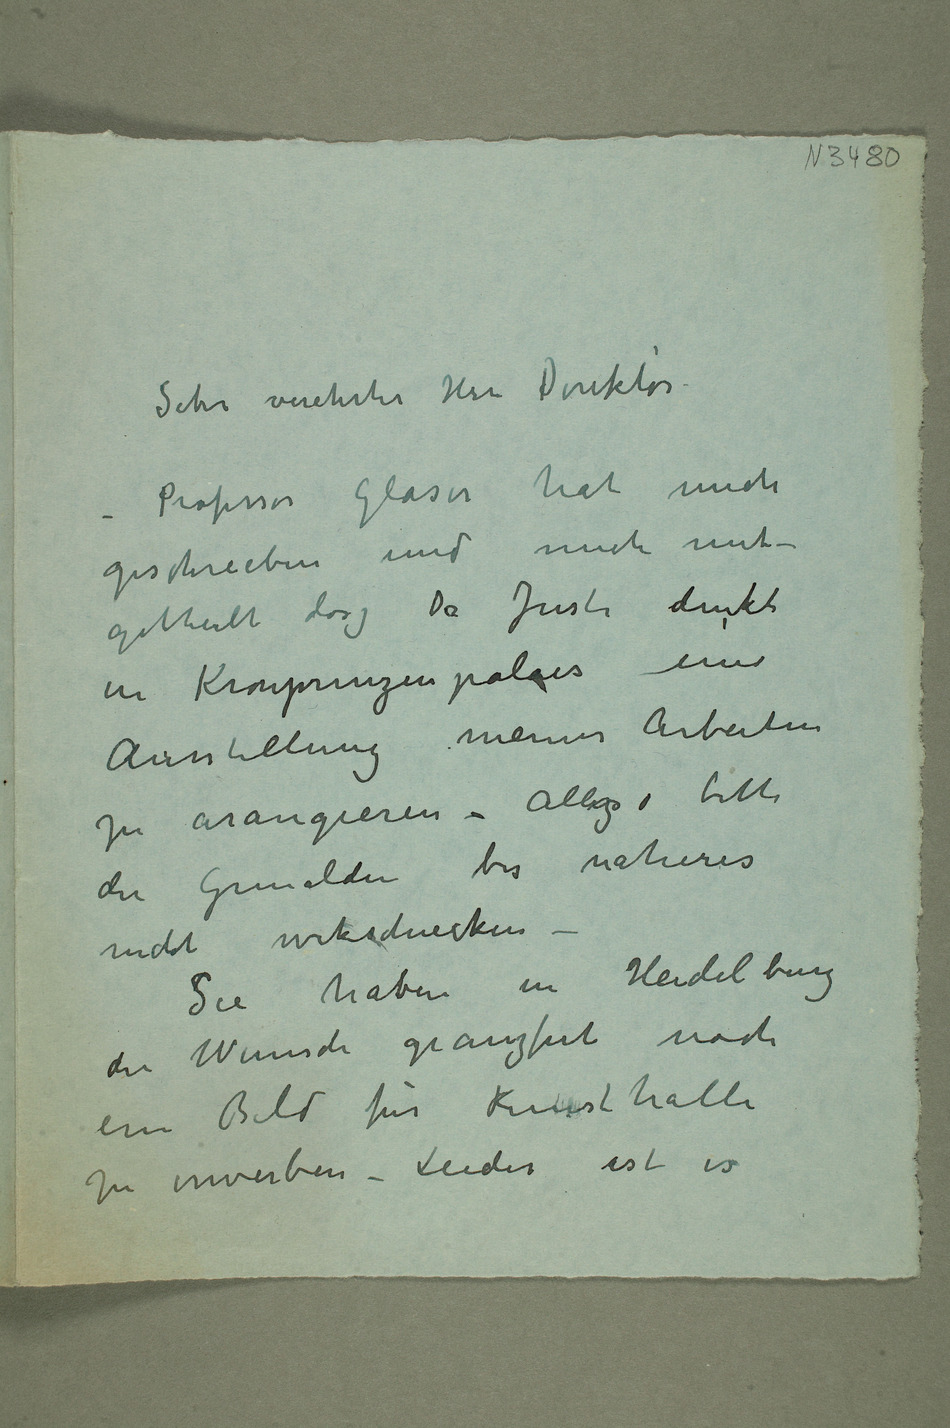 N 3480
Sehr verehrter Herr Direktör
– Professor Glaser hat mich
geschrieben und mich mit–
getheilt dasz Dr Justi denkt
in Kronprinzenpalaes eine
Ausstellung meiner Arbeiten
zu arangieren – Allso bitte
die Gemälden bis näheres
nicht wekschicken –
Sie haben in Heidelburg
die Wunsch geauszert noch
ein Bild für Kunsthalle
zu erwerben – Leider ist es